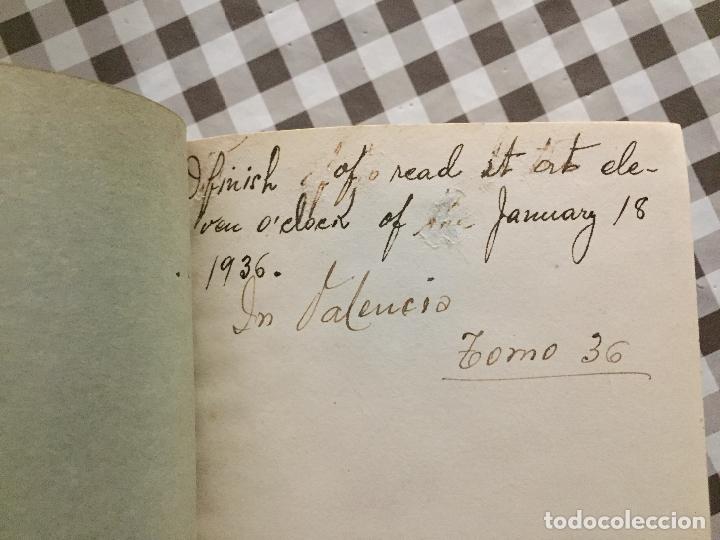 I finish of read it at ele-
ven o'clock of the January 18
1936.
In Valencia
Tomo 36
todocoleccion
todocoleccion.net